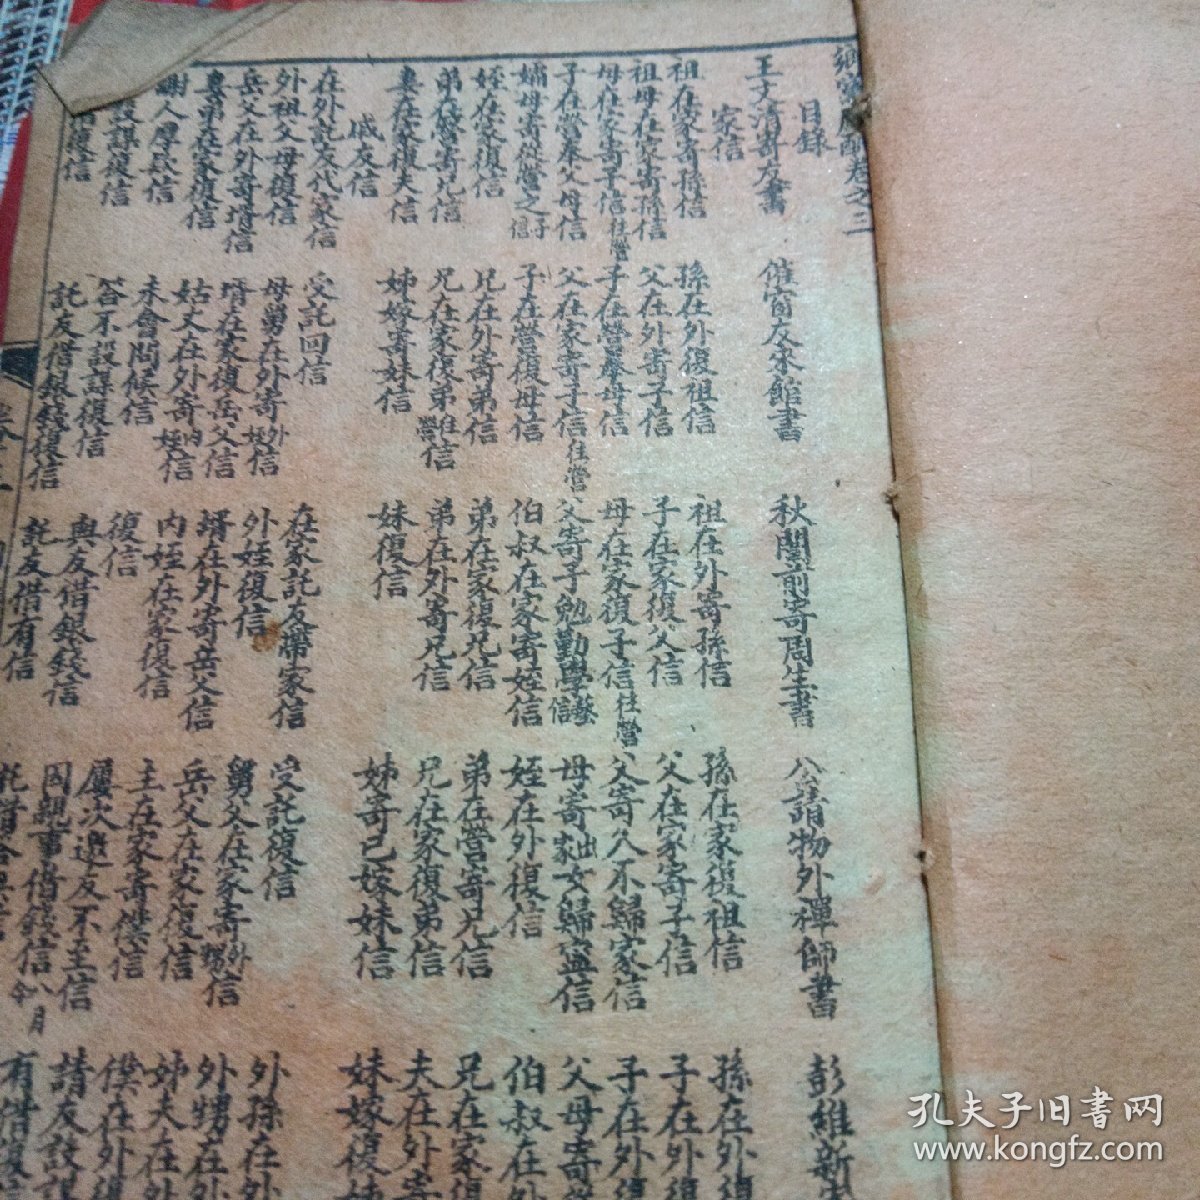 目錄
王文清寄友書 催窗友宋館書 秋闈前寄周生書 公請物外禪師書 彭維新
家信
祖在家寄孫信 孫在外復祖信 祖在外寄孫信 孫在家復祖信 孫在外
祖母在家寄孫信 父在外寄子信 子在家復父信 父在家寄子信 子在外復
母在家寄子信往營 子在營奉母信 母在家復子信往營 父寄久不歸家信 子在外復
子在營奉父母信 父在家寄子信往營 父寄子勉勤學藝信 母寄出嫁女歸寧信 父母寄
嬸母寄從營之子信 子在營復母信 伯叔在家寄姪信 姪在外復信 伯叔在外
姪在家復信 兄在外寄弟信 弟在家復兄信 弟在營寄兄信 兄在家復
弟在營寄兄信 兄在家復弟往營信 弟在外寄兄信 兄在家復弟信 夫在外寄
妻在家復夫信 姊嫁寄妹信 妹復信 姊寄已嫁妹信 妹嫁復姊
戚友信
在外託友代家信 受託回信 在家託友帶家信 受託復信 外孫在外
外祖父母復信 母舅在外寄外姪信 外姪復信 舅父在家寄外甥信 外甥在外
岳父在外寄壻信 壻在家復岳父信 壻在外寄岳父信 岳父在家復信 姊夫在外
妻弟在家復信 姑丈在外寄內姪信 內姪在家復信 主在家寄僕信 僕在外復
謝人厚長信 未會問候信 復信 屢次邀友不至信 請友設謀
設謀復信 答不設謀復信 與友借銀錢信 因親事借錢信八月 有借復信
復信 託友借銀錢復信 託友借有信
孔夫子旧書网
www.kongfz.com